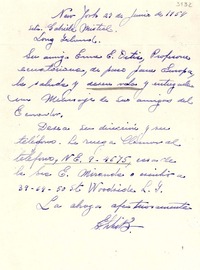 New York 27 de Junio de 1954
Srta. Gabriela Mistral.
Long Island.
Su amiga Emma E. Ortiz, Profesora
ecuatoriana, de paso para Europa
la saluda y desea verla y entregarle
un Mensaje de sus amigos del
Ecuador.
Deseo su dirección y su
teléfono. Le ruego llamarme al
teléfono, N.E. 9-4575, casa de
la Sra E. Miranda o escribir a
39-69-50 St. Woodside L. I.
La abraza afectuosamente